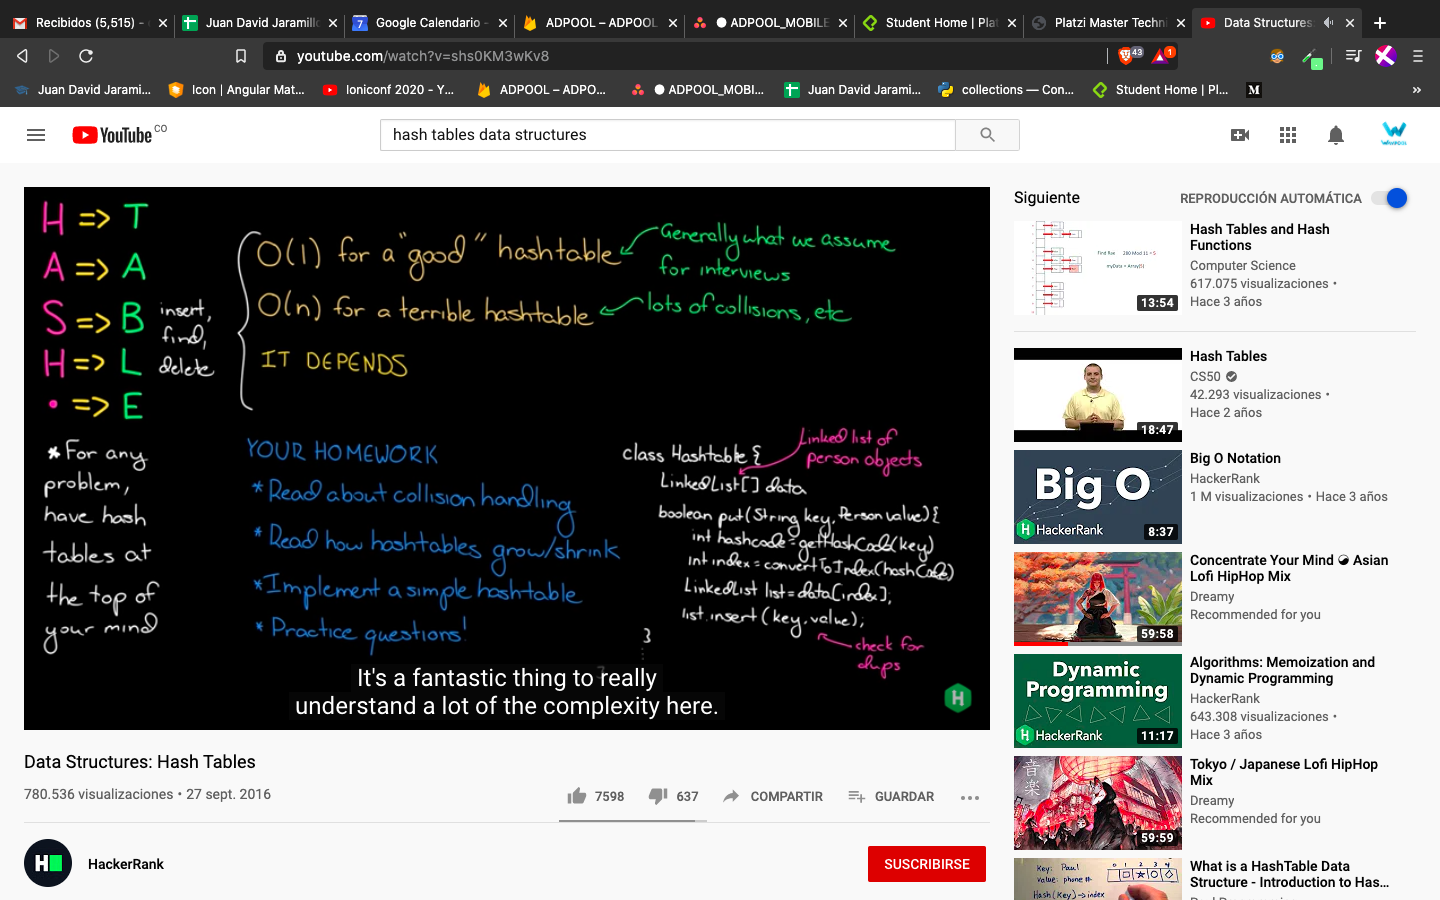 Recibidos (5,515) -
Juan David Jaramill
Google Calendario -
ADPOOL – ADPOOL
ADPOOL_MOBILE
Student Home | Plat
Platzi Master Techni
Data Structures
youtube.com/watch?v=shs0KM3wKv8
43
1
Juan David Jarami...
Icon | Angular Mat...
Ioniconf 2020 - Y...
ADPOOL – ADPO...
ADPOOL_MOBI...
Juan David Jarami...
collections — Con...
Student Home | Pl...
M
»
YouTube CO
hash tables data structures
H => T
A => A
S => B
H => L
• => E
insert,
find,
delete
O(1) for a "good" hashtable
Generally what we assume
for interviews
O(n) for a terrible hashtable
lots of collisions, etc
IT DEPENDS
* For any
problem,
have hash
tables at
the top of
your mind
YOUR HOMEWORK
* Read about collision handling
* Read how hashtables grow/shrink
* Implement a simple hashtable
* Practice questions!
class Hashtable {
Linked list of
person objects
LinkedList[] data
boolean put(String key, Person value) {
int hashcode = getHashCode(key)
int index = convertToIndex(hashCode)
LinkedList list = data[index];
list.insert(key, value);
}
check for
dups
It's a fantastic thing to really
understand a lot of the complexity here.
H
Data Structures: Hash Tables
780.536 visualizaciones • 27 sept. 2016
7598
637
COMPARTIR
GUARDAR
HackerRank
SUSCRIBIRSE
Siguiente
REPRODUCCIÓN AUTOMÁTICA
13:54
Hash Tables and Hash
Functions
Computer Science
617.075 visualizaciones •
Hace 3 años
18:47
Hash Tables
CS50
42.293 visualizaciones •
Hace 2 años
Big O
HackerRank
8:37
Big O Notation
HackerRank
1 M visualizaciones • Hace 3 años
59:58
Concentrate Your Mind ☯ Asian
Lofi HipHop Mix
Dreamy
Recommended for you
Dynamic
Programming
HackerRank
11:17
Algorithms: Memoization and
Dynamic Programming
HackerRank
643.308 visualizaciones •
Hace 3 años
音楽
59:59
Tokyo / Japanese Lofi HipHop
Mix
Dreamy
Recommended for you
Key: Paul
value: phone #
0 1 2 3 4
Hash(Key) → index
What is a HashTable Data
Structure - Introduction to Has...